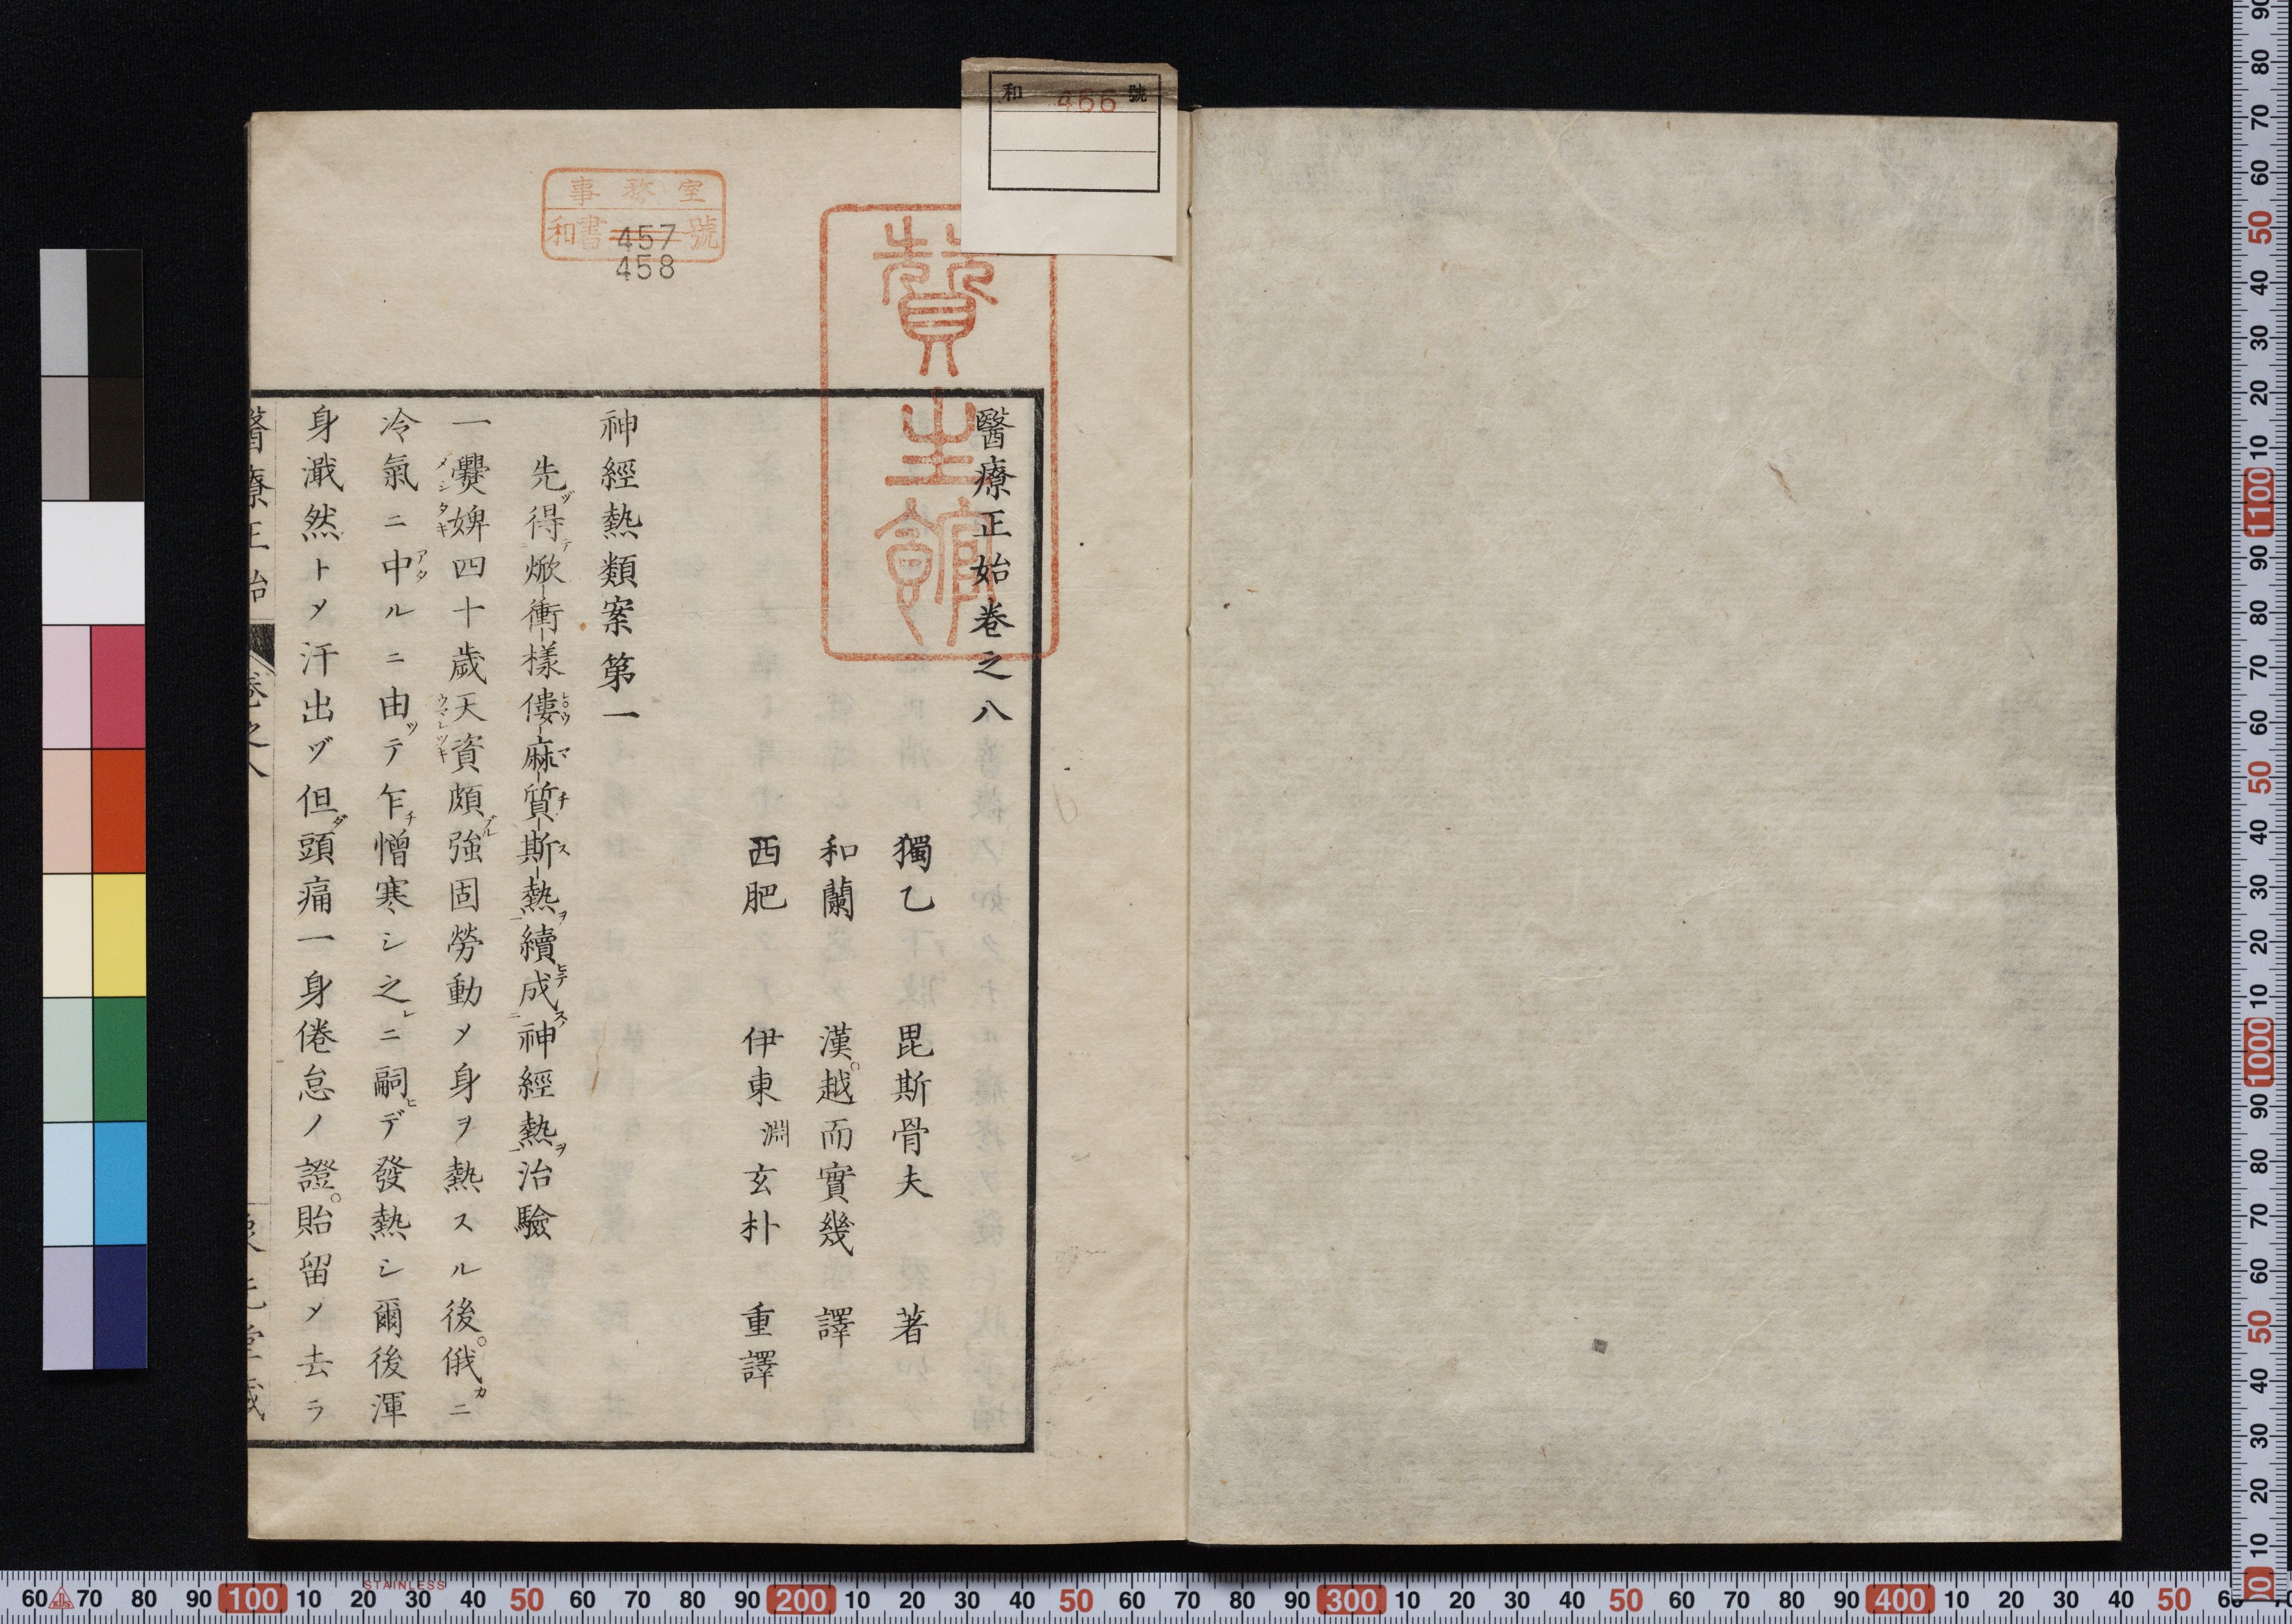 和 466 號
事務室
和書 457 號
458
贊生館
醫療正始卷之八
獨乙 毘斯骨夫 著
和蘭 漢。越而實幾 譯
西肥 伊東淵玄朴 重譯
神經熱類案第一
先ヅ得テ焮衝樣僂麻質斯熱ヲ續成神經熱ヲ治驗
一爨婢四十歲天資頗ブル強固勞動メ身ヲ熱スル後。俄カニ
冷氣ニ中アタルニ由ツテ乍チ憎寒シ之レニ嗣ヒデ發熱シ爾後渾
身濈然トメ汗出ヅ但ダ頭痛一身倦怠ノ證。貽留メ去ラ
醫療正始 卷之八
STAINLESS